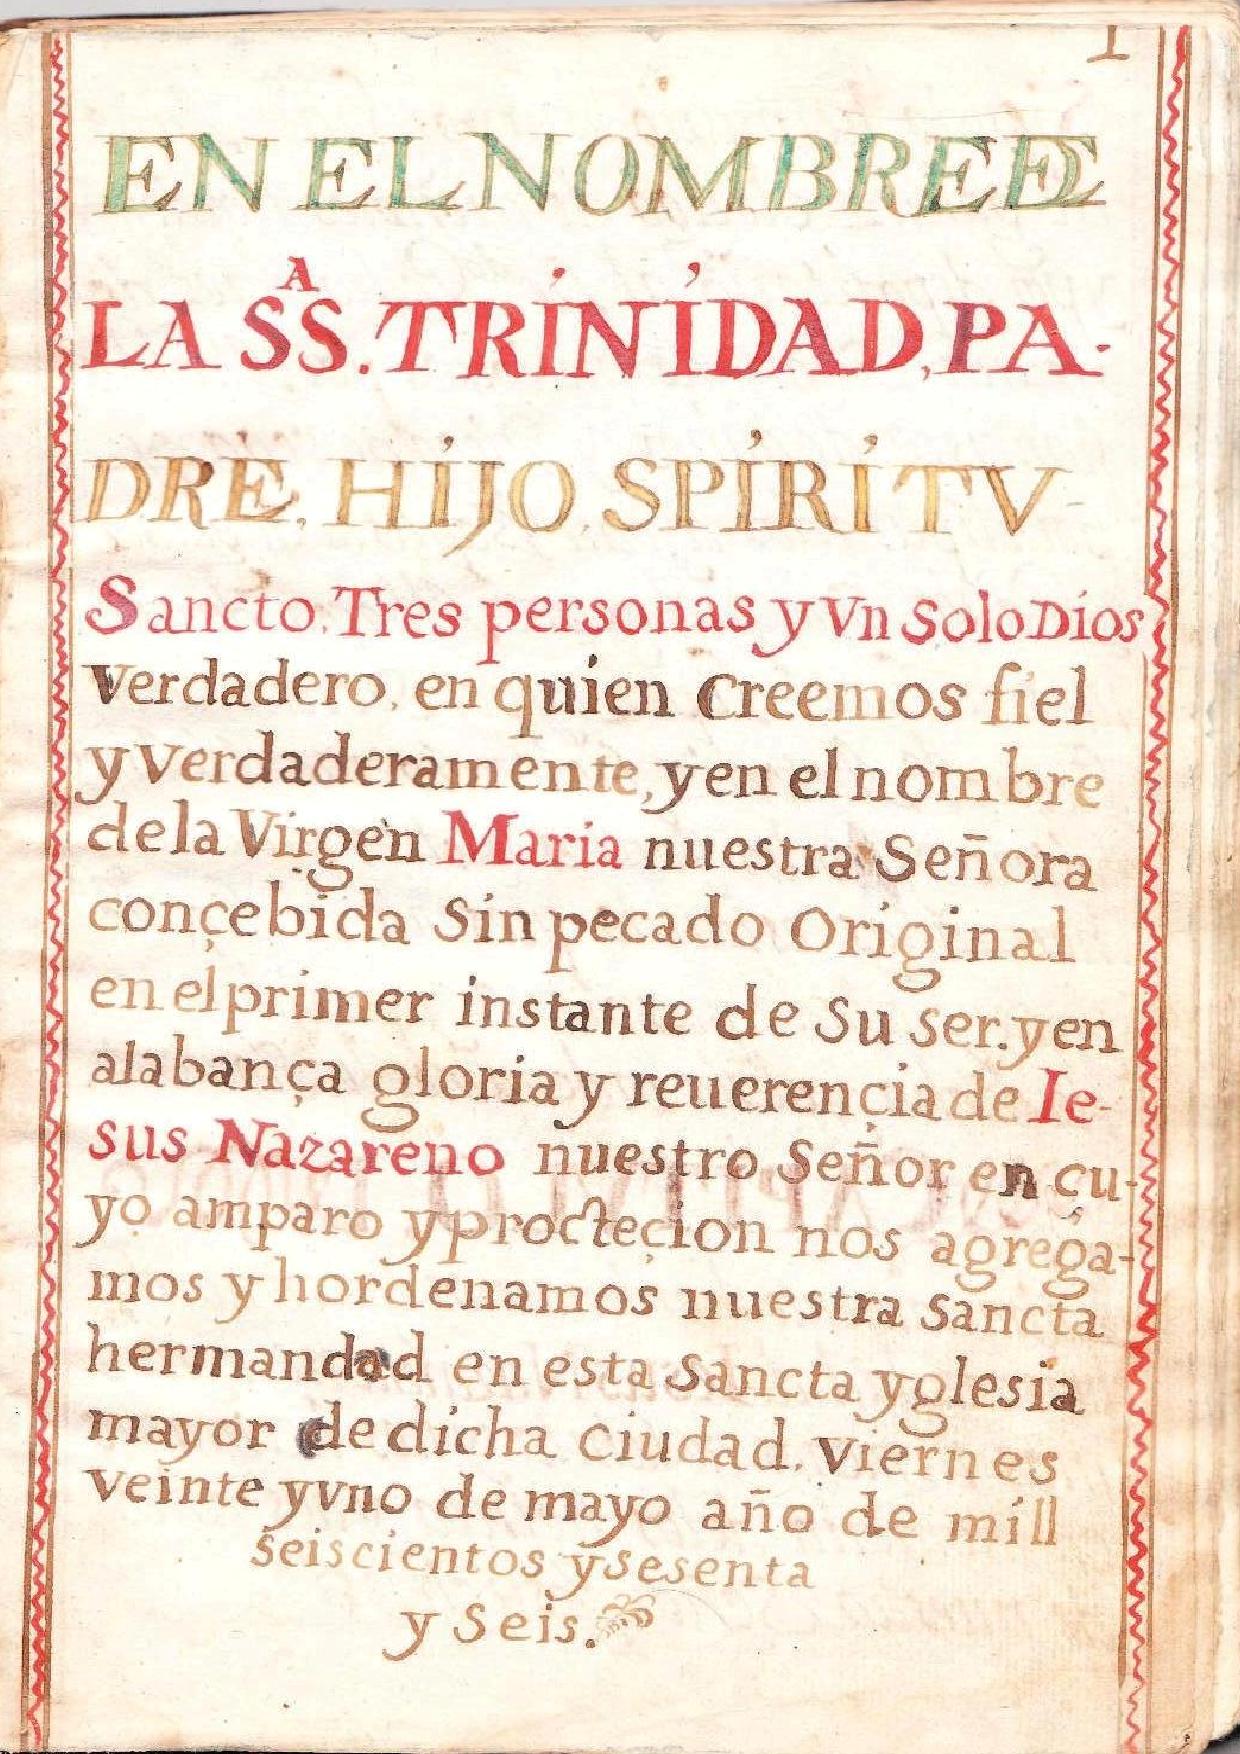 1
EN EL NOMBRE DE
LA SS.ᴬ TRINIDAD, PA-
DRE, HIJO, SPIRITV-
Sancto, Tres personas y vn solo Dios
verdadero, en quien creemos fiel
y verdaderamente, y en el nombre
de la Virgen Maria nuestra Señora
conçebida sin pecado original
en el primer instante de su ser. y en
alabança gloria y reuerençia de Ie-
sus Nazareno nuestro Señor en çu-
yo amparo y procteçion nos agrega-
mos y hordenamos nuestra sancta
hermandad en esta sancta yglesia
mayor de dicha ciudad, viernes
veinte y vno de mayo año de mill
seiscientos y sesenta
y seis.